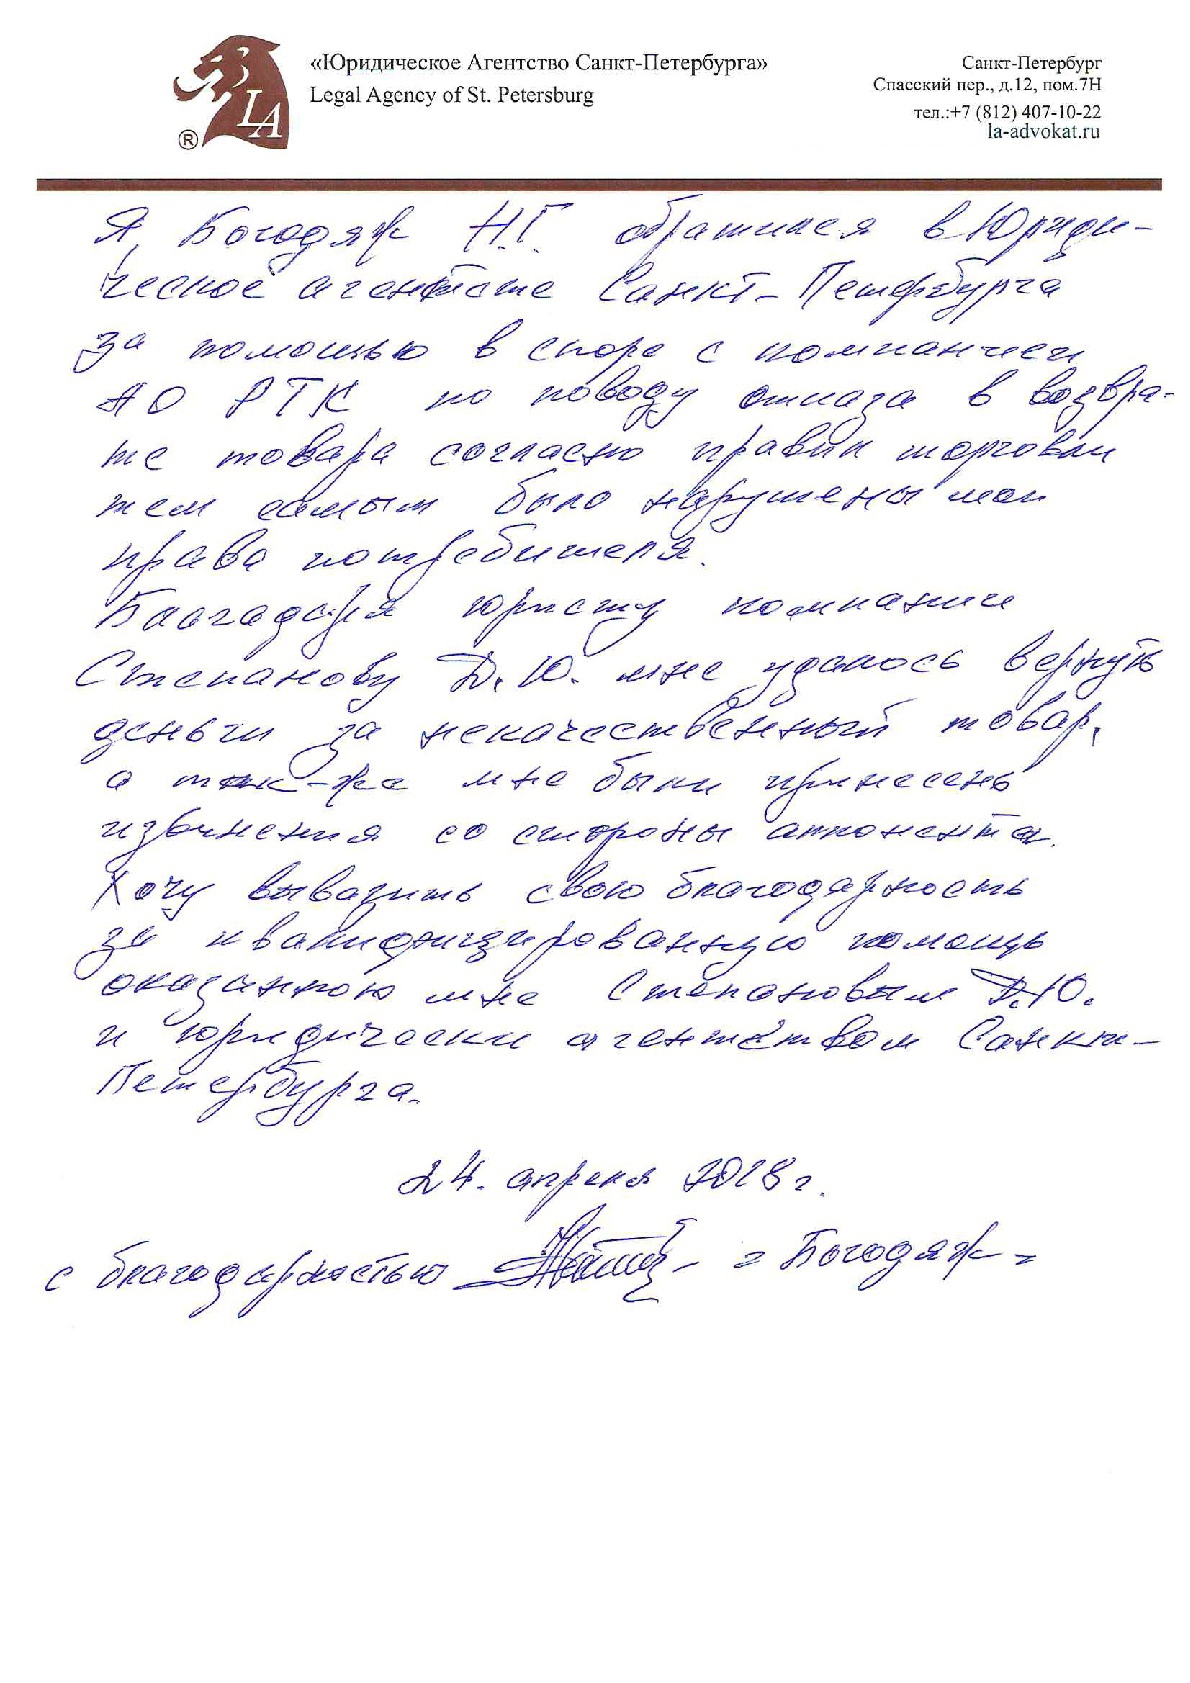 «Юридическое Агентство Санкт-Петербурга»
Legal Agency of St. Petersburg
Санкт-Петербург
Спасский пер., д.12, пом.7Н
тел.:+7 (812) 407-10-22
la-advokat.ru
LA
®
Я, Богодяж Н.Г. обратился в Юриди-
ческое агентсте Санкт-Петербурга
за помощью в споре с компанией
АО РТК по поводу отказа в возвра-
те товара согласно правил торговли
тем самым было нарушены мои
права потребителя.
Благодаря юристу компании
Степанову Д.Ю. мне удалось вернуть
деньги за некачественный товар,
а так-же мне были принесены
извинения со стороны аппонента.
Хочу выразить свою благодарность
за квалифицированную помощь
оказанную мне Степановым Д.Ю.
и юридически агентством Санкт-
Петербурга.
24. апреля 2018 г.
с благодарностью - = Богодяж =